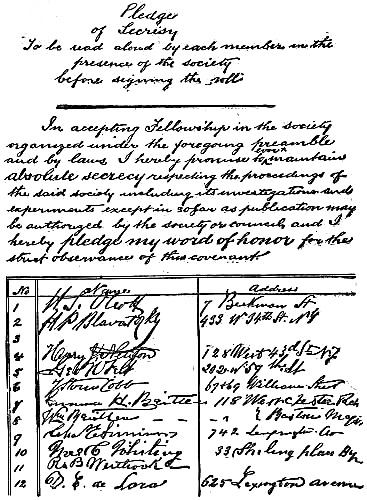 Pledge
of Secresy
To be read aloud by each member in the
presence of the society
before signing the roll:
In accepting Fellowship in the society
organized under the foregoing preamble
and by laws, I hereby promise to ever maintain
absolute secrecy respecting the proceedings of
the said society including its investigations and
experiments except in so far as publication may
be authorized by the society or council, and I
hereby pledge my word of honor for the
strict observance of this covenant
No Names Address
1 H. S. Olcott 7 Beekman St
2 H P Blavatsky 433 W 34th St. N.Y
3
4 Henry J. Newton 128 West 43d St. N.Y
5
6 Cobb 67+69 William Street
7 Emma H. Britten 118 West Chester
8 Wm Britten " " Boston Mass
9 742 Lexington Av
10
11 R B Westbrook
12 D. E. de Lara 625 Lexington avenue